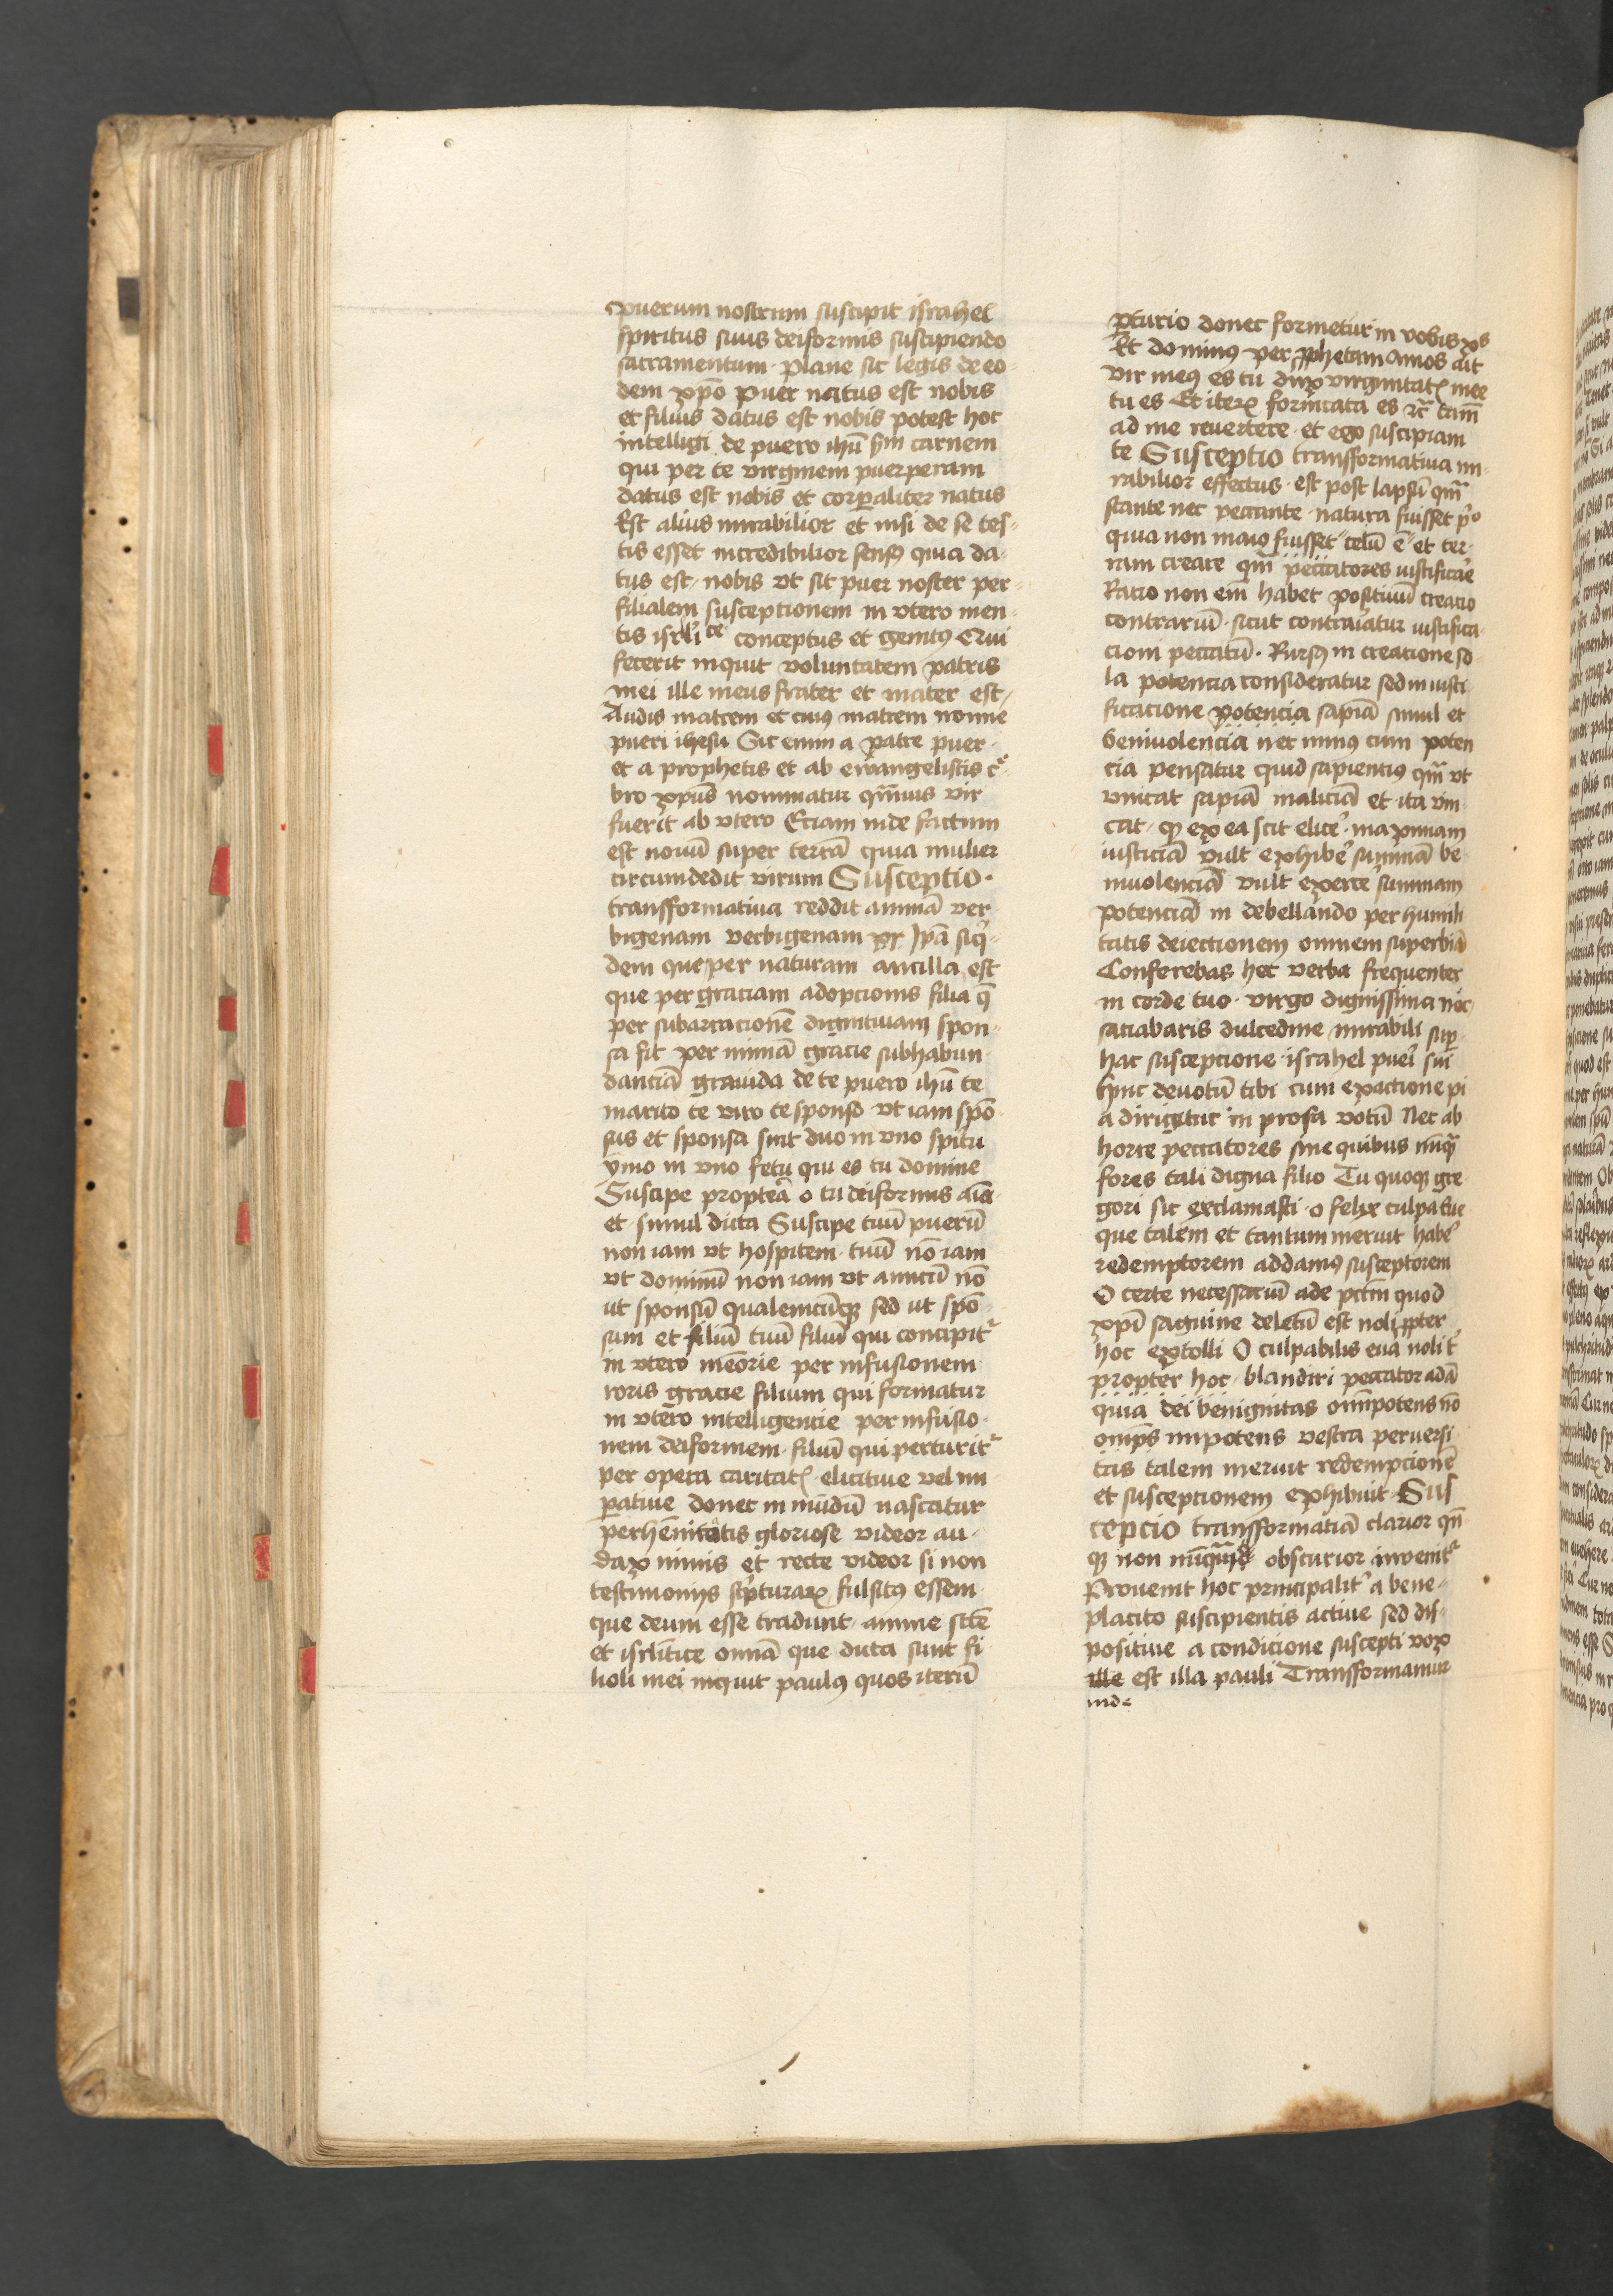 puerum nostrum suscipit israhel
spiritus suus deiformis suscipiendo
sacramentum · Plane sic legis de eo-
dem xp̄o Puer natus est nobis
et filius datus est nobis potest hoc
intelligi de puero ihū carnem
qui per te virginem puerperam
datus est nobis et corꝑaliter natus
Est alius mirabilior et nisi de se tes-
tis esset incredibilior sensꝯ quia da-
tus est nobis vt sit puer noster per
filialem susceptionem in vtero men-
tis isrl'ice conceptus et genitꝯ Qui
fecerit inquit voluntatem patris
mei ille meus frater et mater est
Audis matrem et cuiꝯ matrem nonne
pueri ihesu Sic enim a patre puer
et a prophetis et ab ewangelistis c̄-
bro xp̄us nominatur qm̄uis vir
fuerit ab vtero Eciam inde factum
est nouū super terrā quia mulier
circumdedit virum Susceptio ·
transformatiua reddit animā ver
bigenam verbigenam Ip̄a siq̄-
dem que per naturam ancilla est
que per graciam adopcionis filia q̄
per subarracionē dignitiuam spon-
sa fit per nimiā gracie subhabun
danciā grauida de te puero ihū te
marito te viro te sponso vt iam spō
sus et sponsa sint duo in vno spiritu
ymo in vno fetu qui es tu domine
Suscipe propterea o tu deiformis aīa
et simul dicta Suscipe tuū puerū
non iam vt hospitem tuū nō iam
vt dominū non iam vt amicū nō
ut sponsū qualemcūqꝫ sed ut spō
sum et filiū tuū filiū qui concipitᷣ
in vtero meōrie per infusionem
roris gracie filium qui formatur
in vtero intelligencie per infusio-
nem deiformem filiū qui parturitᷣ
per opera caritatꝭ elicitiue vel im
patiue donec in mūdū nascatur
perhēnitatis gloriose videor au-
dax nimis et recte videor si non
testimonijs scpturarꝫ fulsitꝯ essem
que deum esse tradunt anime scē
et isrl'itice omnā que dicta sunt fi
lioli mei inquit paulꝯ quos iterū
ꝑturio donec formetur in vobis xꝯ
Et dominꝯ per ꝓphetam amos ait
vir meꝯ es tu dux virginitatꝭ mee
tu es Et iterꝫ fornicata es tam̄
ad me reuertere et ego suscipiam
te Susceptio transformatiua mi
rabilior effectus est post lapsū qm̄
stante nec peccante natura fuisset
quia non maiꝯ fuisset celū ē et ter
ram creare qm̄ peccatores iustificare
Racio non em̄ habet positiuū creacio
contrariū sicut contraiatur iustifica
cioni peccatū · Rursꝯ in creacione so
la potencia consideratur sed in iusti
ficacione potencia sapiā simul et
beniuolencia nec minꝯ cum poten
cia pensatur quid sapienciꝯ qm̄ vt
vincat sapiā maliciā et ita vin
cat qꝫ ex ea scit elice' maximam
iusticiā vult exhibe' summā be
niuolenciā vult exerce' summam
potenciā in debellando per humili
tatis deiectionem omnem superbiā
Conferebas hec verba frequenter
in corde tuo virgo dignissima
saciabaris dulcedine mirabili suꝑ
hac suscepcione israhel pueri sui
hinc deuotū tibi cum exactione pi
a dirigitur in prosa votū Nec ab
horre peccatores sine quibus nūqꝫ
fores tali digna filio Tu quoqꝫ gre
gori sic exclamasti o felix culpa
que talem et tantum meruit habe'
redemptorem addamꝯ susceptorem
O certe necessariū ade pctm̄ quod
xpi saguine deletū est noli ꝓpter
hoc extolli O culpabilis eua noli
propter hoc blandiri peccator adā
quia dei benignitas omīpotens nō
omp̄s impotens vestra peruersi
tas talem meruit redempcionē
et suscepcionem exhibuit Sus
cepcio transformatiā clarior
qꝫ non obscurior inuenitᷣ
Prouenit hoc principalit' a bene-
placito suscipientis actiue sed dis-
positiue a condicione suscepti vox
ille est illa pauli Transformamur
inde